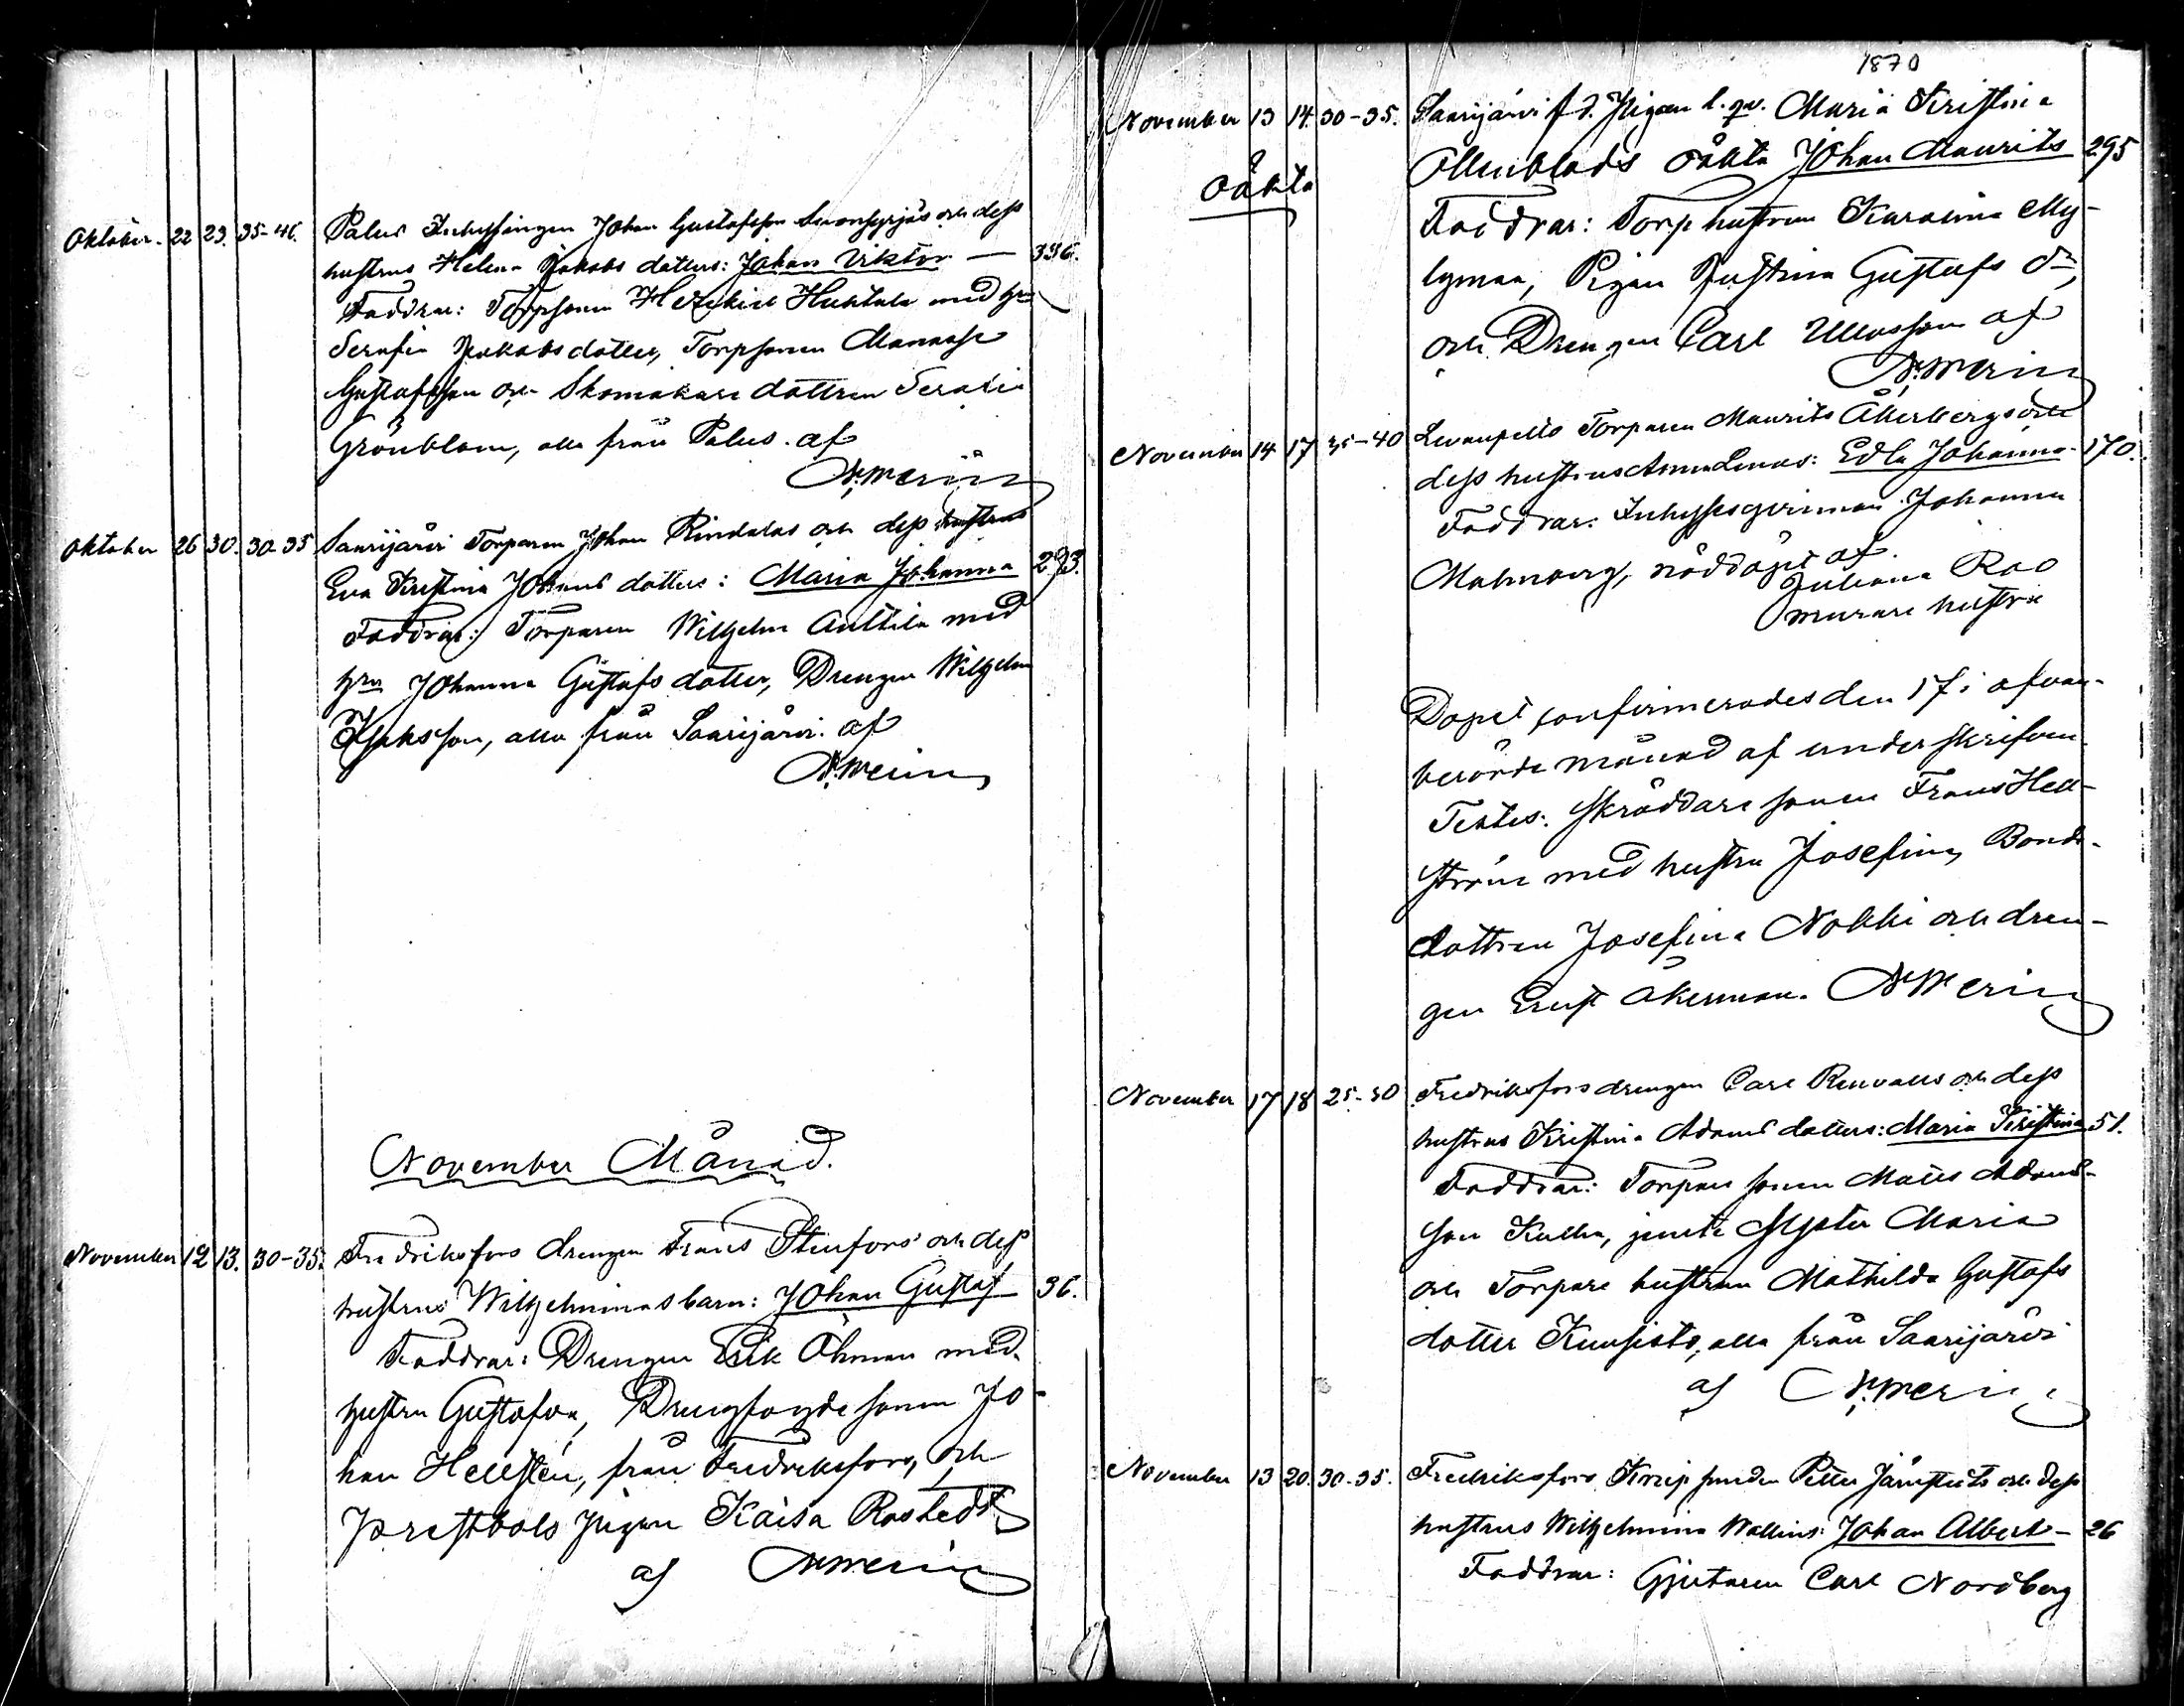 Oktober. 22 23. 35-40. Palus Inhysingen Johan Gustafsson och dess
hustrus Helena Jakobs dotters: Johan Viktor — 336.
Faddrar: Torpsonen Hezekiel Huhtala med hru
Serafia Jakobsdotter, Torpsonen Manasse
Gustafsson och Skomakare dottren Serafia
Grönblom, alla från Palus. af
N. Merin
Oktober 26 30. 30-35 Saarijärvi Torparen Johan Rindalas och dess hustrus
Eva Kristina Johans dotters: Maria Johanna 293.
Faddrar: Torparen Wilhelm Anttila med
hru Johanna Gustafs dotter, Drengen Wilhelm
Isaksson, alla från Saarijärvi. af
N. Merin
November Månad.
November 12 13. 30-35. Fredriksfors drengen Frans Stenfors' och dess
hustrus Wilhelminas barn: Johan Gustaf 36.
Faddrar: Drengen Erik Öhman med
hustru Gustafva, Drengfogdesonen Jo-
han Hellstén, från Fredriksfors, och
Prestbols pigan Kaisa Rostedt
af N. Merin
1870
November 13 14. 30-35. Saarijärvi f.d. Pigan l. qv. Maria Kristina
oäkta
Ollenblads oäkta Johan Maurits 295
Faddrar: Torp hustrun Karolina My-
lymaa, Pigan Justina Gustafs dr,
och Drengen Carl Ullosson af
N. Merin
November 14 17 35-40 Levanpelto Torparen Maurits Åkerbergs och
dess hustrus Anna Lenas: Edla Johanna. 170.
Faddrar: Inhysesqvinnan Johanna
Malmberg, nöddöpt af
Juliana Roo
murare hustru
Dopet confirmerades den 17 i ofvan-
berörde månad af underskrifven.
Testes: Skräddare sonen Frans Hell-
ström med hustru Josefina, Bonde-
dottren Josefina Nokki och dren-
gen Ernst Åkerman. N. Merin
November 17 18 25-30 Fredriksfors drengen Carl Renvalls och dess
hustrus Kristina Adams dotters: Maria Kristina 51.
Faddrar: Torpare sonen Matts Adams-
son Kulha, jemte Syster Maria
och Torpare hustrun Mathilda Gustafs
dotter Kuusisto, alla från Saarijärvi
af N. Merin
November 13 20. 30-35. Fredriksfors Knip smeden Petter Järnstedts och dess
hustrus Wilhelmina Wallins: Johan Albert — 26
Faddrar: Gjutaren Carl Nordberg